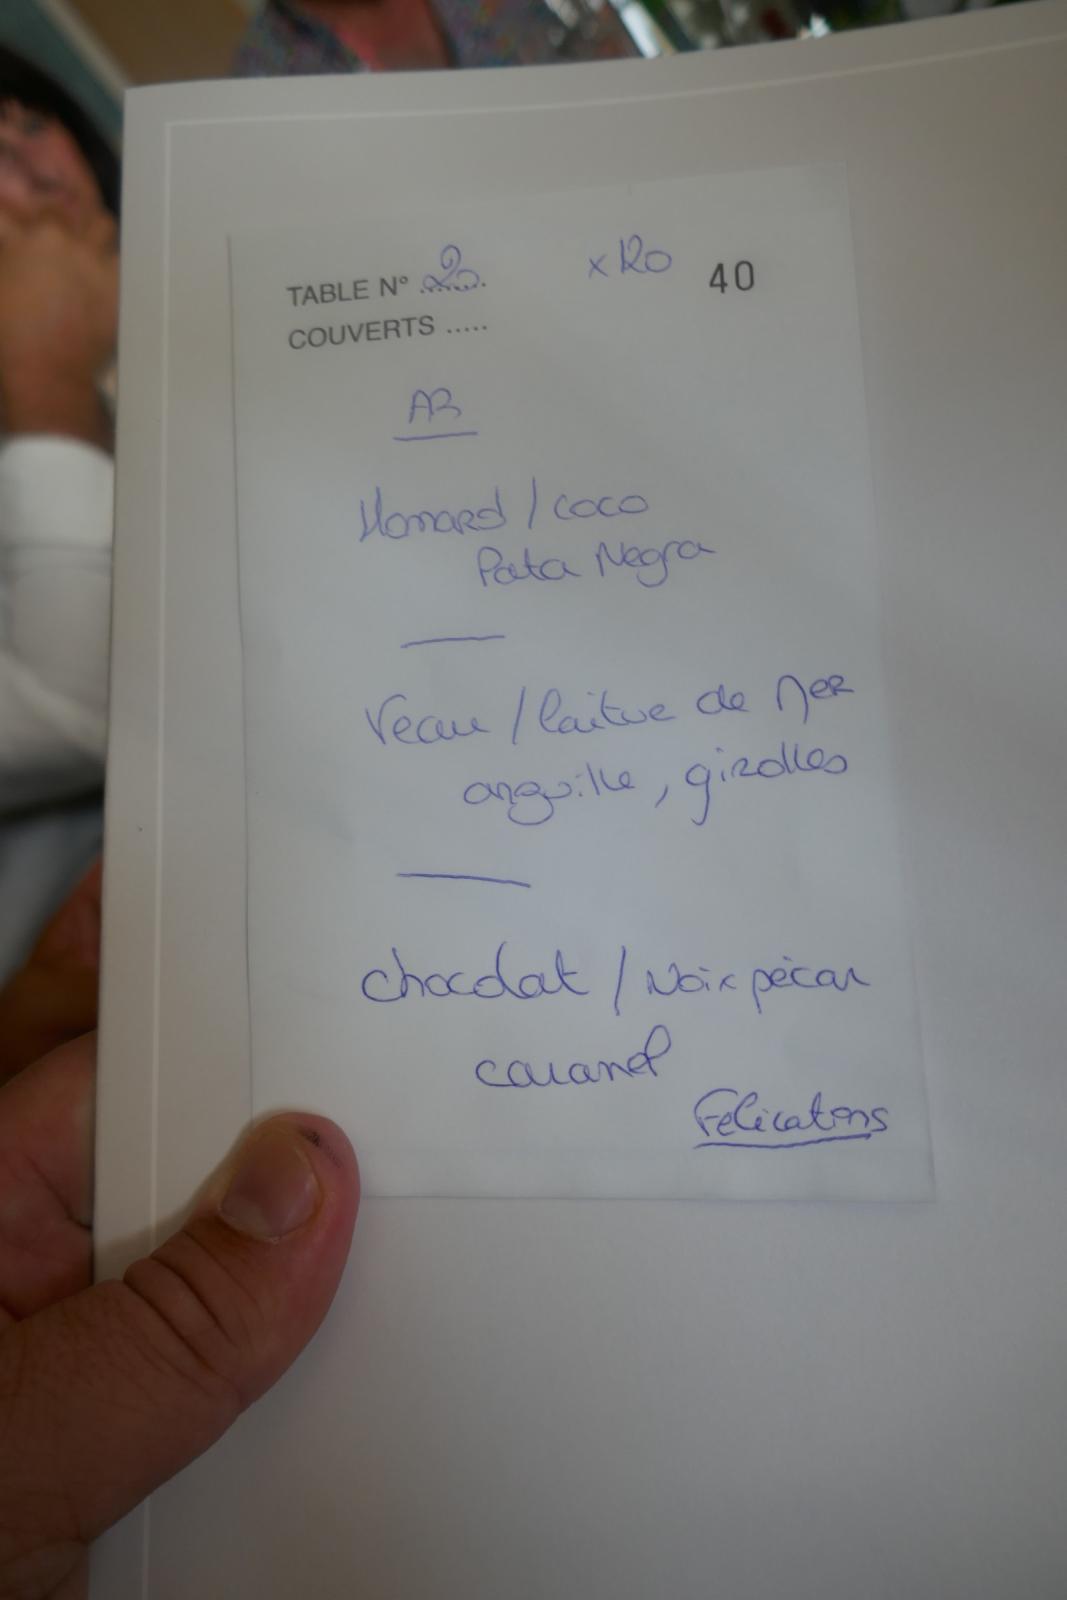 TABLE N° 20 x120 40
COUVERTS .....
AB
Homard / coco
Pata Negra
Veau / laitue de Mer
anguille, girolles
chocolat / Noix pécan
caramel
Félications